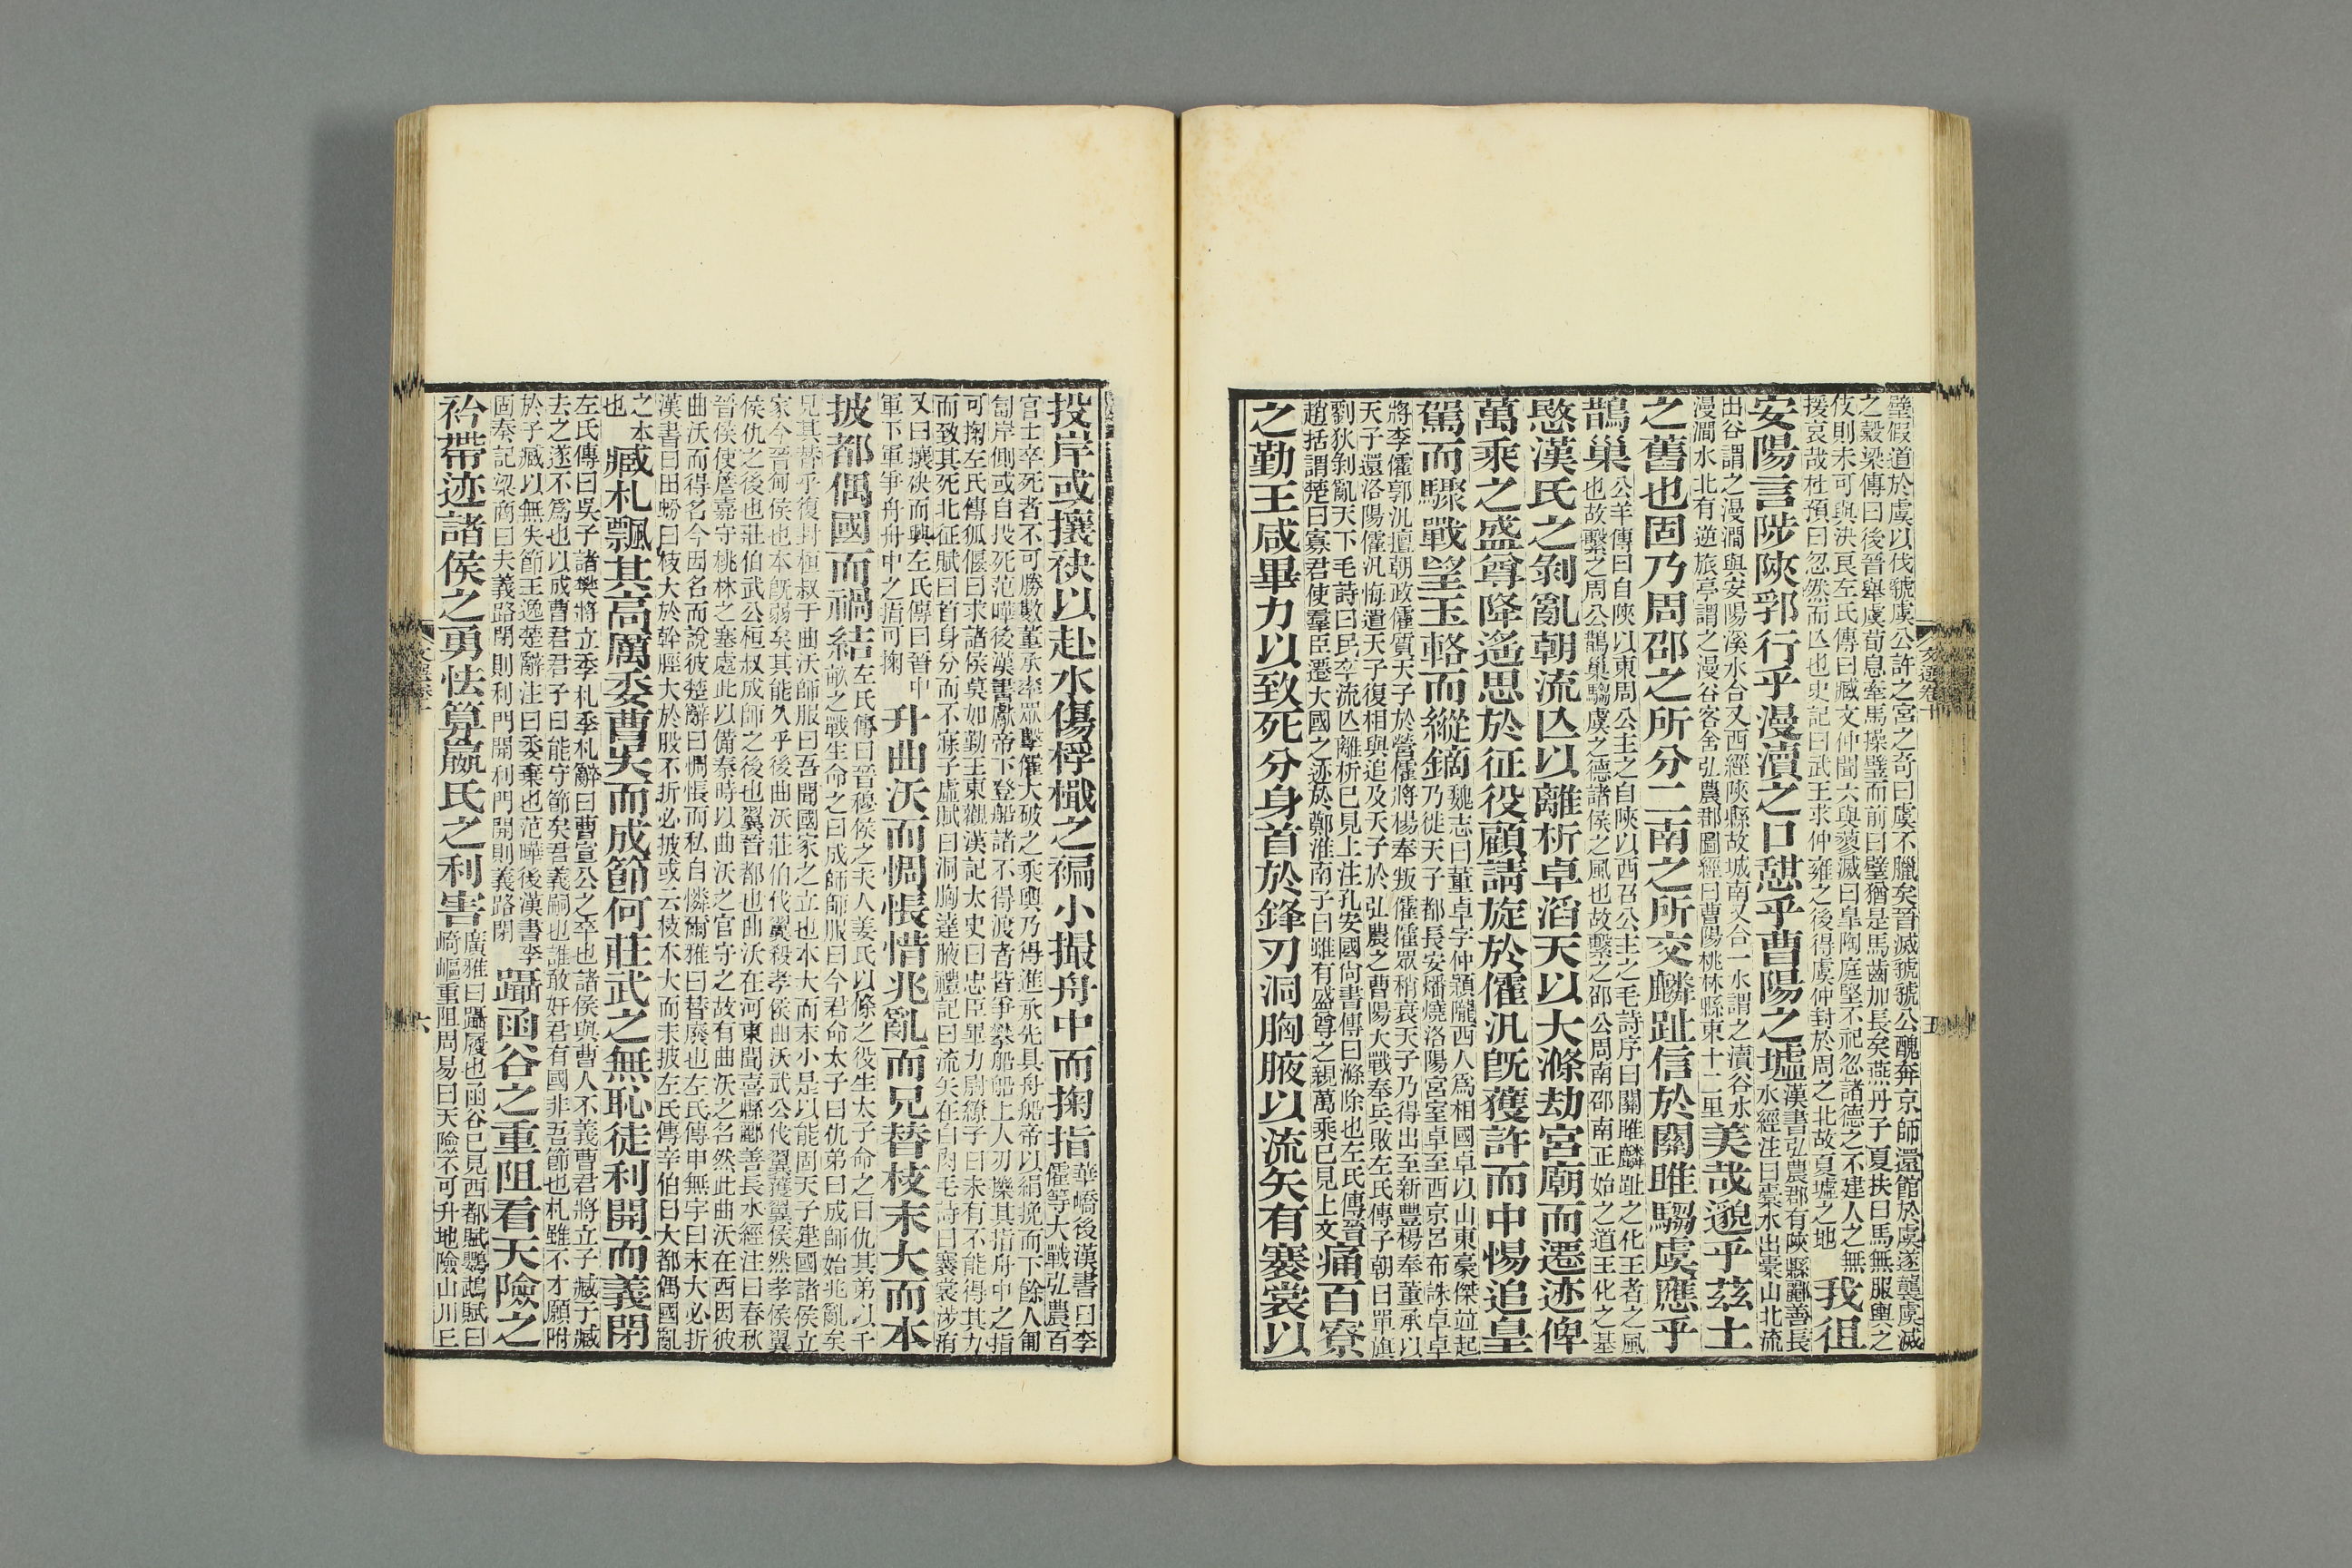 璧假道於虞以伐虢虞公許之宮之奇曰虞不臘矣晉滅虢虢公醜奔京師還館於虞遂襲虞滅
之穀梁傳曰後晉舉虞荀息牽馬操璧而前曰璧猶是馬齒加長矣燕丹子夏扶曰馬無服輿之
伎則未可與決良左氏傳曰臧文仲聞六與蓼滅曰皐陶庭堅不祀忽諸德之不建人之無
援哀哉杜預曰忽然而亾也史記曰武王求仲雍之後得虞仲封於周之北故夏墟之地
我徂
安陽言陟陝郛行乎漫瀆之口憩乎曹陽之墟
漢書弘農郡有陝縣酈善長
水經注曰橐水出橐山北流
出谷謂之漫澗與安陽溪水合又西經陝縣故城南又合一水謂之瀆谷水
漫澗水北有逆旅亭謂之漫谷客舍弘農郡圖經曰曹陽桃林縣東十二里
美哉邈乎茲土
之舊也固乃周邵之所分二南之所交麟趾信於關雎騶虞應乎
鵲巢
公羊傳曰自陝以東周公主之自陝以西召公主之毛詩序曰關雎麟趾之化王者之風
也故繫之周公鵲巢騶虞之德諸侯之風也故繫之邵公周南邵南正始之道王化之基
愍漢氏之剝亂朝流亾以離析卓滔天以大滌劫宮廟而遷迹俾
萬乘之盛尊降遙思於征役顧請旋於傕汜旣獲許而中惕追皇
駕而驟戰望玉輅而縱鏑
魏志曰董卓字仲穎隴西人爲相國卓以山東豪傑竝起
乃徙天子都長安燔燒洛陽宮室卓至西京呂布誅卓卓
將李傕郭汜擅朝政傕質天子於營傕將楊奉叛傕傕眾稍衰天子乃得出至新豐楊奉董承以
天子還洛陽傕汜悔遣天子復相與追及天子於弘農之曹陽大戰奉兵敗左氏傳子朝曰單旗
劉狄剝亂天下毛詩曰民卒流亾離析已見上注孔安國尚書傳曰滌除也左氏傳晉
趙括謂楚曰寡君使羣臣遷大國之迹於鄭淮南子曰雖有盛尊之親萬乘已見上文
痛百寮
之勤王咸畢力以致死分身首於鋒刃洞胸腋以流矢有褰裳以
文選卷十
五
投岸或攘袂以赴水傷桴檝之褊小撮舟中而掬指
華嶠後漢書曰李
傕等大戰弘農百
官士卒死者不可勝數董承率眾擊傕大破之乘輿乃得進承先具舟船帝以絹挽而下餘人匍
匐岸側或自投死范曄後漢書獻帝下登船諸不得渡者皆爭攀船船上人刃擽其指舟中之指
可掬左氏傳狐偃曰求諸侯莫如勤王東觀漢記太史曰忠臣畢力尉繚子曰未有不能得其力
而致其死北征賦曰首身分而不寐子虛賦曰洞胸達腋禮記曰流矢在白肉毛詩曰褰裳涉洧
又曰攘袂而興左氏傳曰晉中
軍下軍爭舟舟中之指可掬
升曲沃而惆悵惜兆亂而兄替枝末大而本
披都偶國而禍結
左氏傳曰晉穆侯之夫人姜氏以條之役生太子命之曰仇其弟以千
畝之戰生命之曰成師師服曰今君命太子曰仇弟曰成師始兆亂矣
兄其替乎復封桓叔于曲沃師服曰吾聞國家之立也本大而末小是以能固天子建國諸侯立
家今晉甸侯也本旣弱矣其能久乎後曲沃莊伯伐翼殺孝侯曲沃武公伐翼獲翼侯然孝侯翼
侯仇之後也莊伯武公桓叔成師之後也翼晉都也曲沃在河東聞喜縣酈善長水經注曰春秋
晉侯使詹嘉守桃林之塞處此以備秦時以曲沃之官守之故有曲沃之名然此曲沃在西因彼
曲沃而得名今因名而說彼楚辭曰惆悵而私自憐爾雅曰替廢也左氏傳申無宇曰末大必折
漢書曰田蚡曰枝大於幹脛大於股不折必披或云枝本大而末披左氏傳辛伯曰大都偶國亂
之本
也
臧札飄其高厲委曹吳而成節何莊武之無恥徒利開而義閉
左氏傳曰吳子諸樊將立季札季札辭曰曹宣公之卒也諸侯與曹人不義曹君將立子臧子臧
去之遂不爲也以成曹君君子曰能守節矣君義嗣也誰敢奸君有國非吾節也札雖不才願附
於子臧以無失節王逸楚辭注曰委棄也范曄後漢書李
固奏記梁商曰夫義路閉則利門開利門開則義路閉
躡函谷之重阻看天險之
衿帶迹諸侯之勇怯筭嬴氏之利害
廣雅曰躡履也函谷已見西都賦鸚鵡賦曰
崎嶇重阻周易曰天險不可升地險山川丘
六